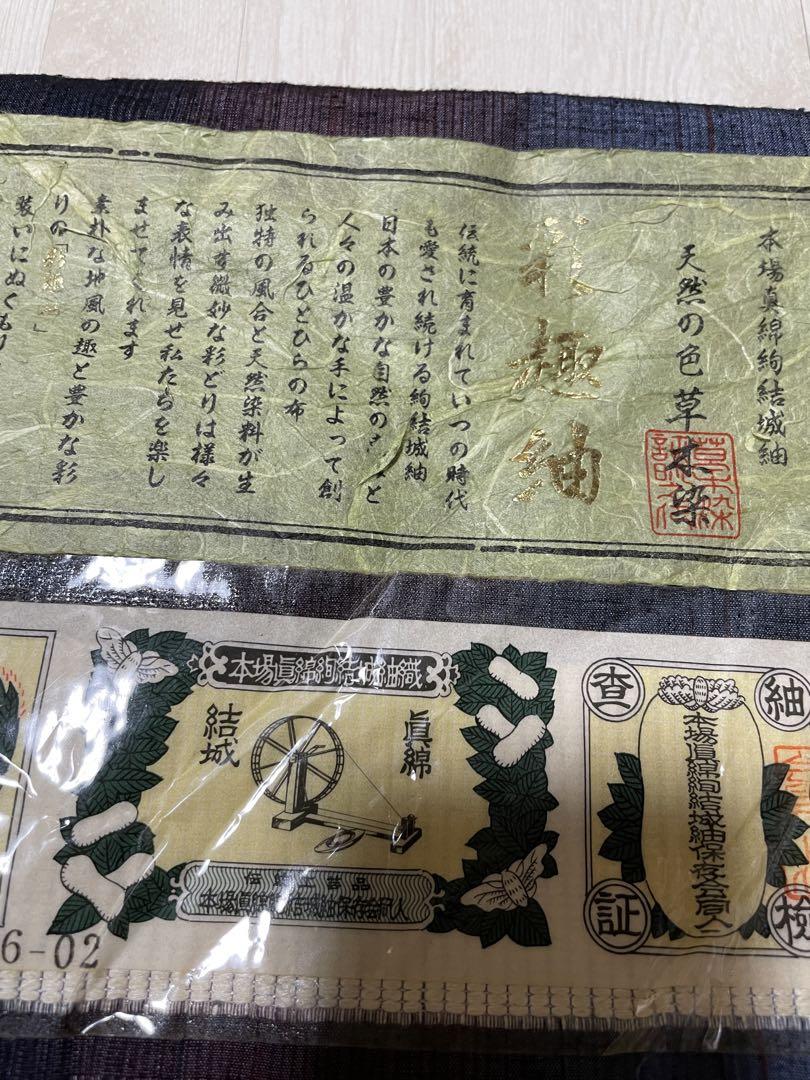 本場真綿絢結城紬
天然の色 草木染
彩趣紬
伝統に育まれていつの時代
も愛され続ける絢結城紬
日本の豊かな自然の
と
人々の温かな手によって創
られるひとひらの布
独特の風合と天然染料が生
み出す微妙な彩どりは様々
な表情を見せ私たちを楽し
ませてくれます
素朴な地風の趣と豊かな彩
りの「
」
装いにぬくもり
本場眞綿絢結城紬織
眞綿
結城
本場眞綿
結城紬保存会同人
紬
査
検
証
本場眞綿絢結城紬保存会同人
6-02